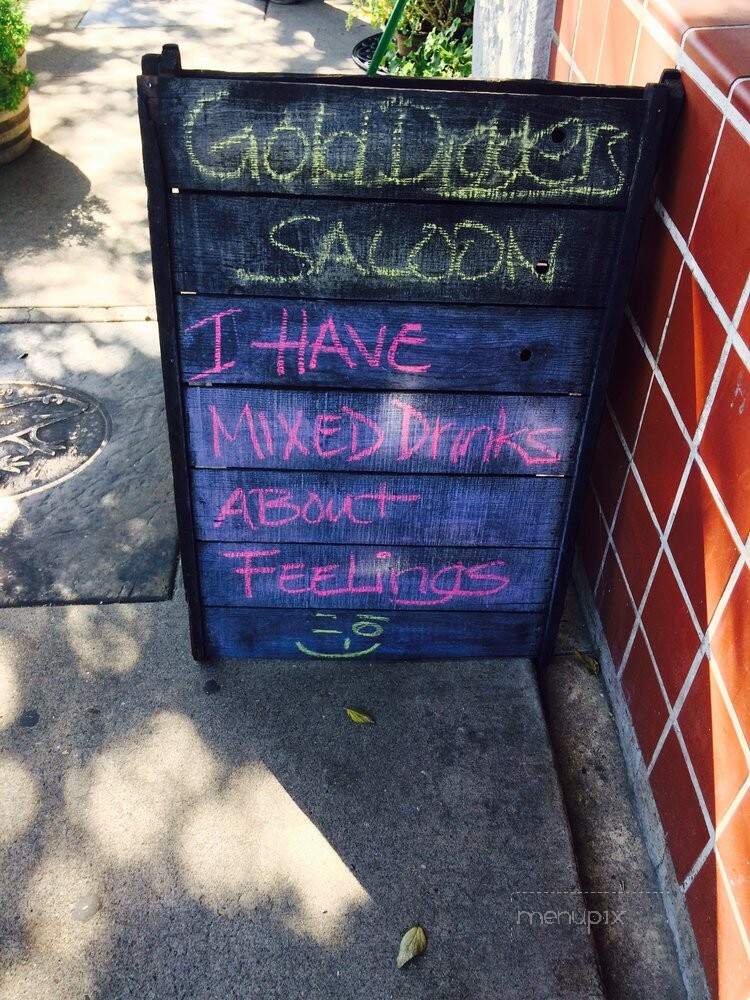 Gold Diggers
SALOON
I HAVE
MIXED Drinks
ABOUT
FEELINGS
menupix